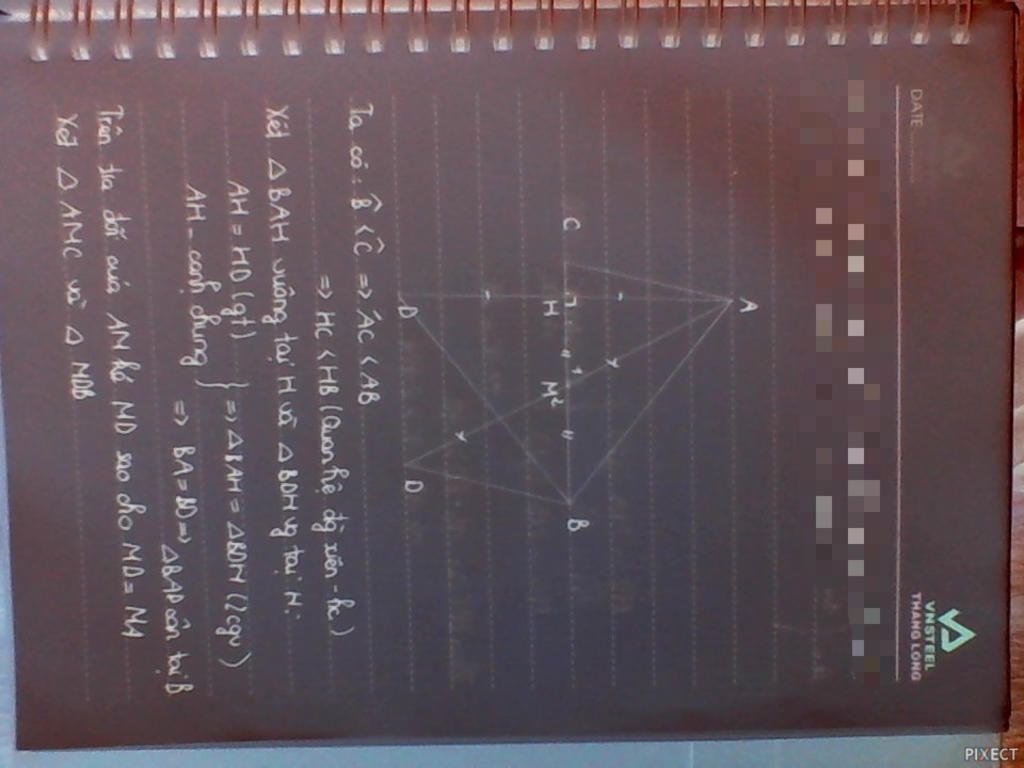 DATE
VNSTEEL
THANG LONG
A
C
H
M
2
B
D
D
Ta có: B̂ < Ĉ => AC < AB
=> HC < HB (Quan hệ đg xiên - hc)
Xét △ BAH vuông tại H và △ BDH vg tại H:
AH = HD (gt)
AH - cạnh chung } => △BAH = △BDH (2cgv)
=> BA = BD => △BAD cân tại B
Trên tia đối của AM kẻ MD sao cho MD = MA
Xét △ AMC và △ MDB
PIXECT